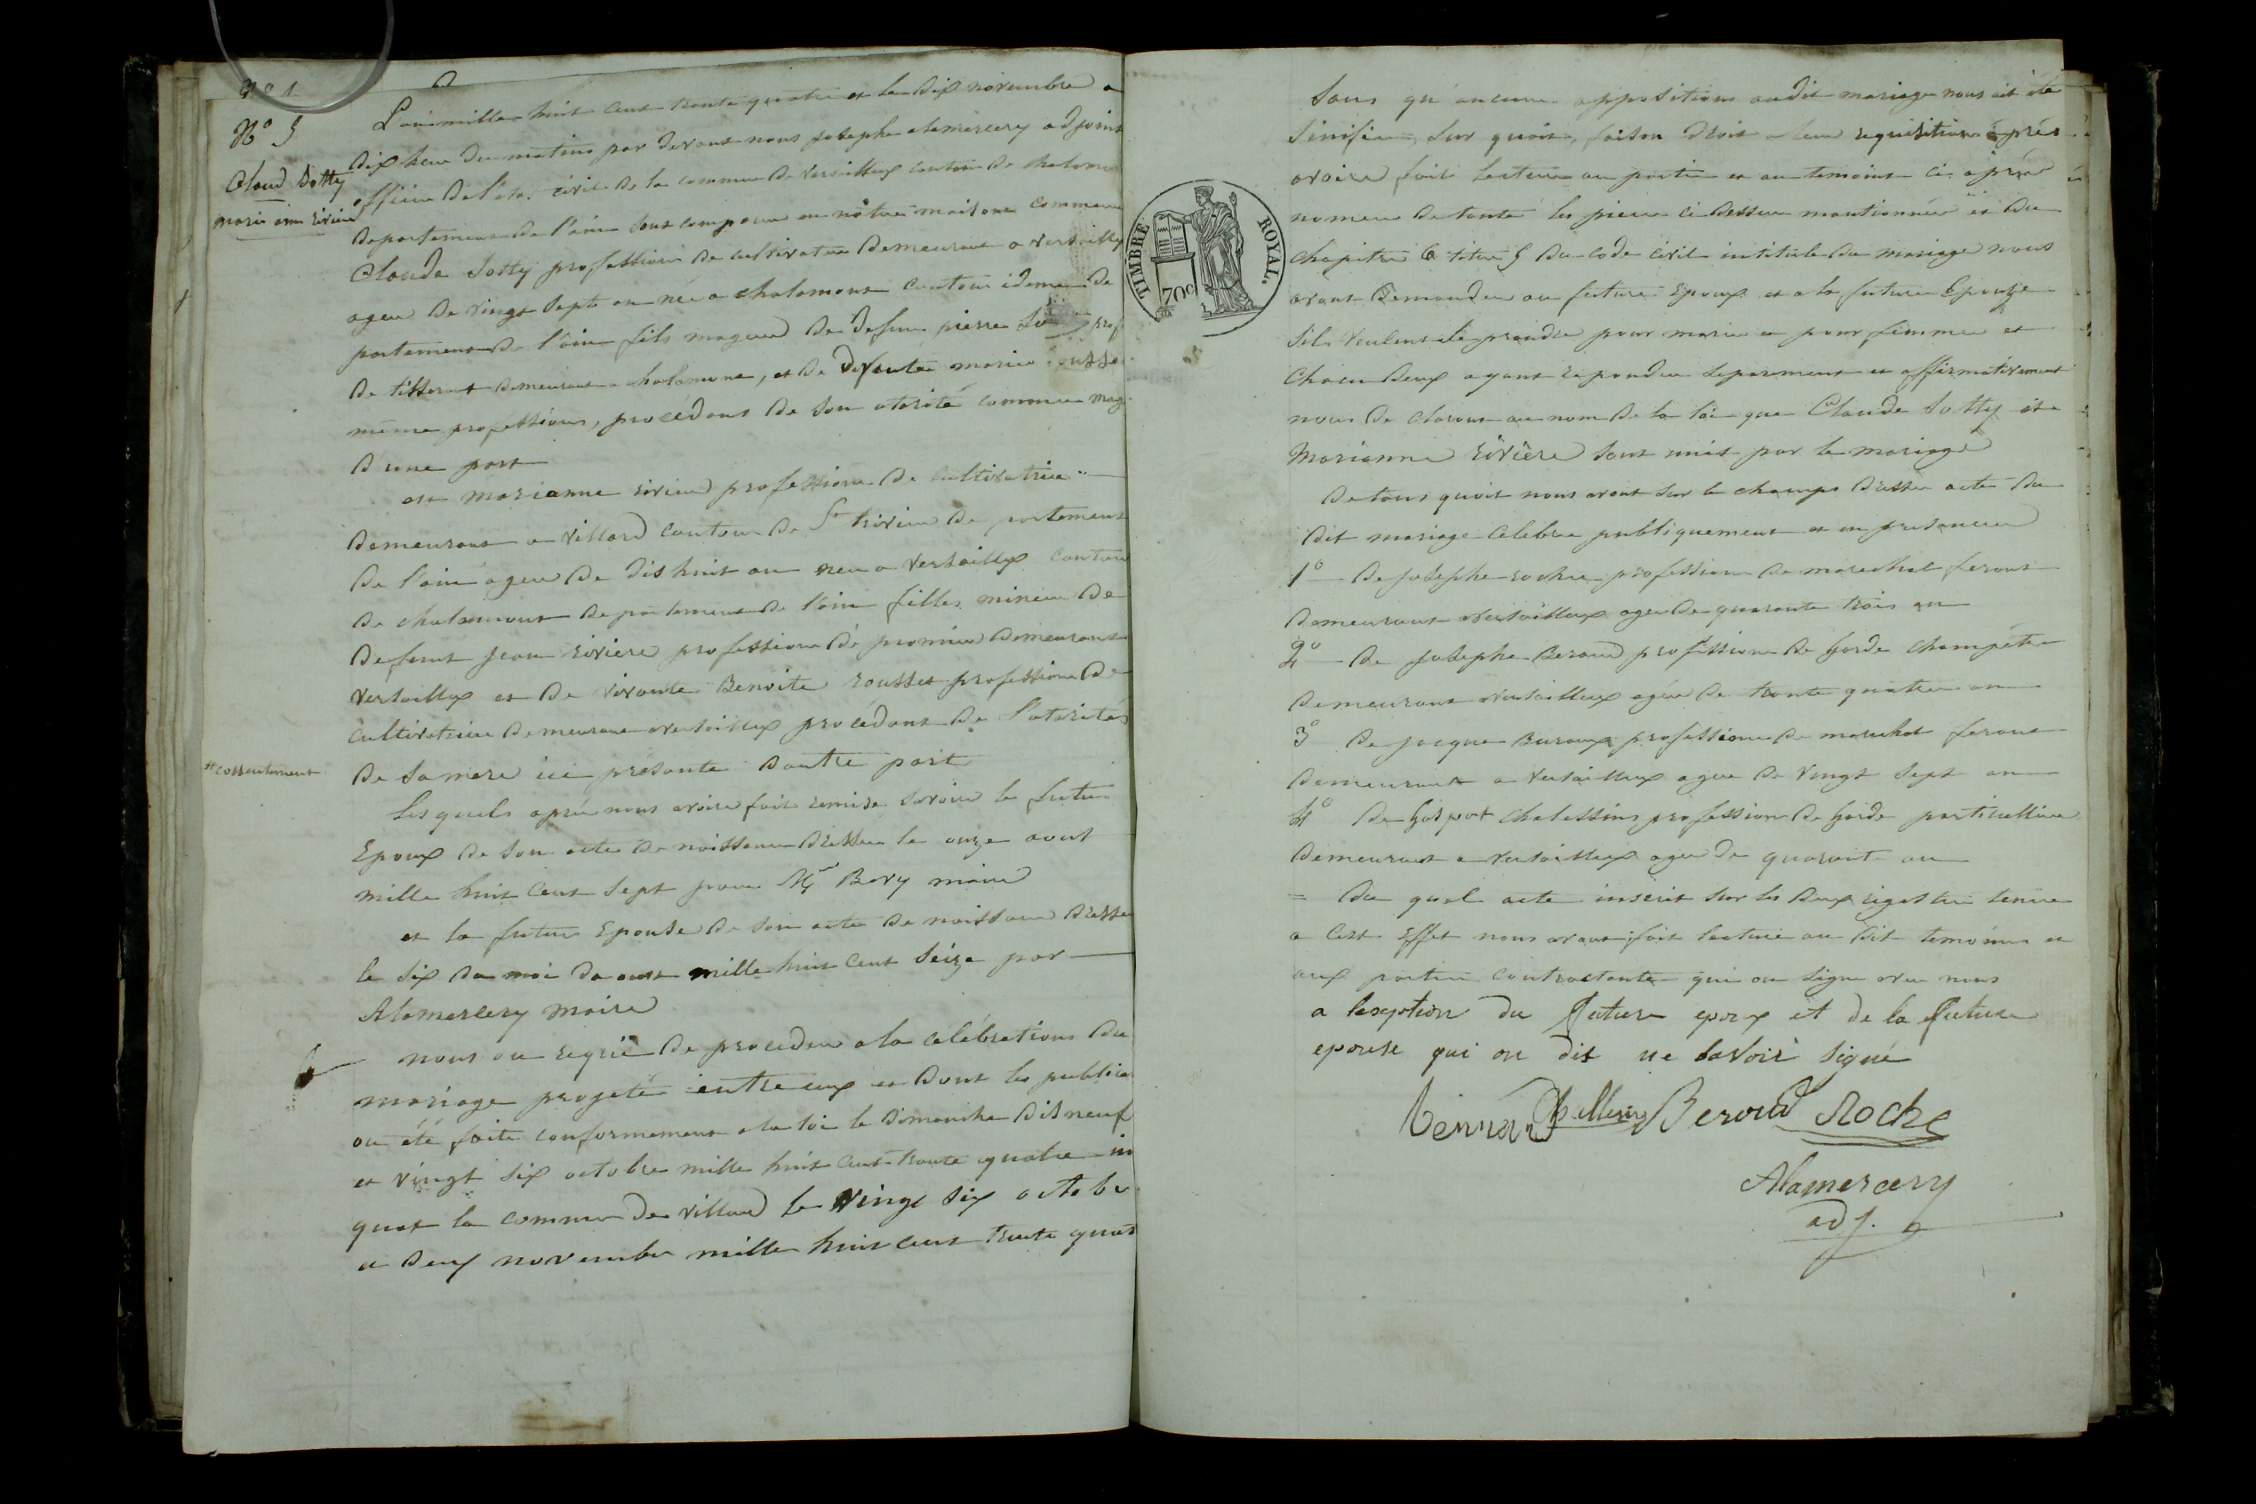 No 1
No 5
Claud Sotty
marie ann riviere
L'an mille huit cent trente quatre et le dix novembre a
dix heur du matins par devant nous Josephe alamercery adjoint
officier de l'etat civil de la commune de versailleux canton de chalamont
departement de l'ain sont comparu en nôtre maison commune
Claude Sotty profession de cultivateur demeurant a versailleux
agée de vingt sept an née a chalamont canton idem de
partement de l'ain fils mageur de defunt pierre
de tisserant demeurant a chalamont, et de vivante marie
même profession, procédant de son otorité comme mag
d'une part
et marianne riviere profession de cultivatrice
demeurant a villard canton de St trivier departement
de l'ain agée de dishuit an née a versailleux canton
de chalamont departement de l'ain filles mineur de
defunt jean riviere profession de demeurant
versailleux et de vivante Benoite rousset profession de
cultivatrice demeurant a versailleux procédant de l'otorités
#consentement
de sa mere ici présente d'autre part
Lesquels aprés nous avoire fait remise savoire le futur
Epoux de son acte de naissance dressée le onze aout
mille huit cent sept par Mr Bory maire
et la future Epouse de son acte de naissance dressé
le six du moi de aout mille huit cent séize par
Alamercery maire
nous on requié de proceder a la celébrations du
mariage projeté entre eux et dont les public
on été faite conformement a la loi le dimanche disneuf
et vingt six octobre mille huit cent trente quatre
quat la commune de villard le vingt six octobre
et deux novembre mille huit cent trente quat
TIMBRE ROYAL.
70c
Sans qu'aucune oppositions audit mariage nous ait été
Sinifiée, Sur quoit, faison droit a leur requisition aprés
avoire fait lecture au partie et au temoins ci aprés
nomée de toute les piece ci dessue mantionnée et du
chapitre 6 titre 5 du code civil intitulé du mariage nous
avont demander au future Epoux et a la future Epouze
Sil veulent se prendre pour marie et pour femme et
Chacun deux ayant repondu separment et affirmativement
nous de clarons au nom de la loi que Claude Sotty et
Marianne riviere sont unis par le mariage
De tous quoit nous avont sur le champs dresser acte du
dit mariage celebré publiquement et en presance
1o de Josephe roche profession de marechal ferant
demeurant a versailleux agée de quarante trois an
2o de Josephe Beroud profession de Garde champéte
demeurant a versailleux agée de trente quatre an
3o de jacque profession de marechal ferant
demeurant a versailleux agée de vingt sept an
4o de Gaspart chalessins profession de Garde particuliere
demeurant a versailleux agée de quarant an
= Du quel acte inscrit sur les deux registre tenue
a cest Effet nous avont fait lecture au dit temoins et
aux partie contractante qui on signe avec nous
a lexsption du future epoux et de la future
epouse qui on dit ne savoir signé
Beroud Roche
Alamercery
adj.